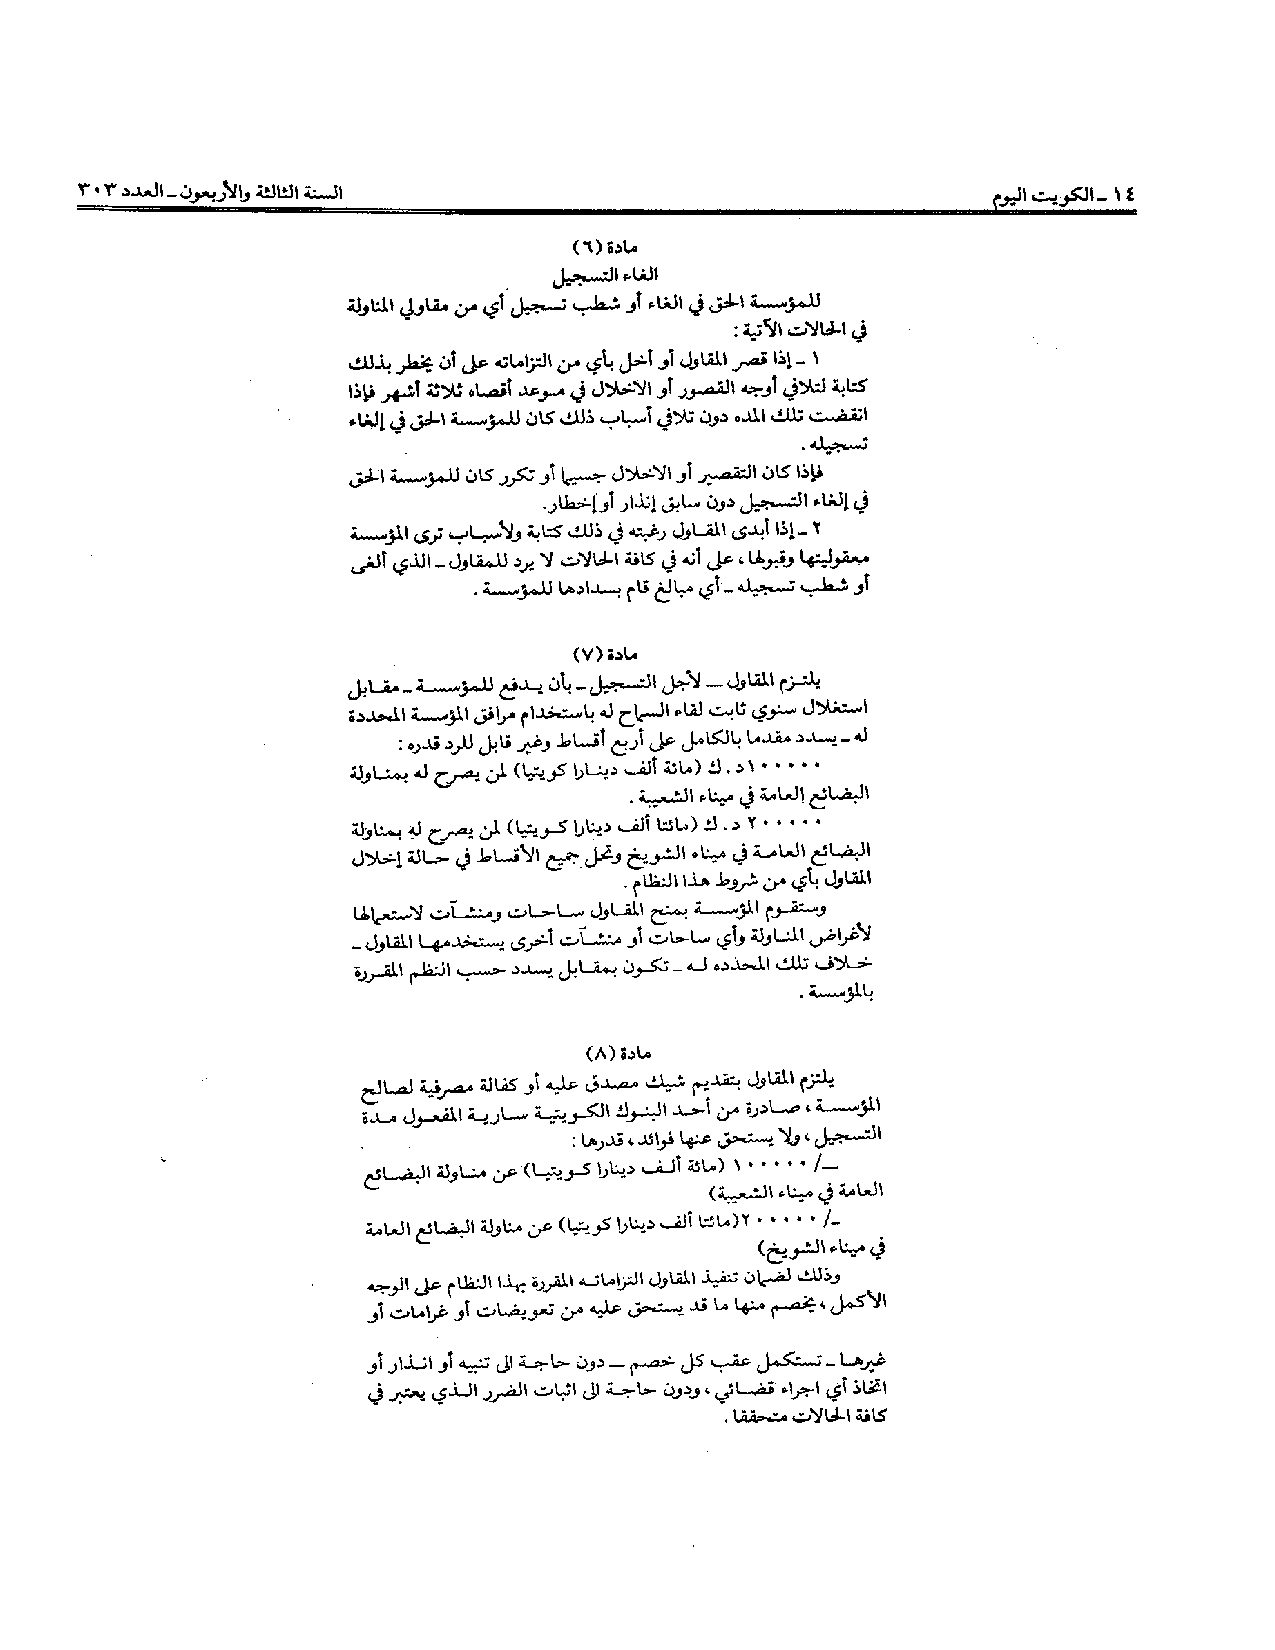 ١٤ - الكويت اليوم
السنة الثالثة والأربعون - العدد ٣٠٣
مادة (٦)
الغاء التسجيل
للمؤسسة الحق في الغاء أو شطب تسجيل أي من مقاولي المناولة
في الحالات الآتية :
١ - إذا قصر المقاول أو أخل بأي من التزاماته على أن يخطر بذلك
كتابة لتلافي أوجه القصور أو الاخلال في موعد أقصاه ثلاثة أشهر فإذا
انقضت تلك المده دون تلافي أسباب ذلك كان للمؤسسة الحق في إلغاء
تسجيله .
فإذا كان التقصير أو الاخلال جسيما أو تكرر كان للمؤسسة الحق
في إلغاء التسجيل دون سابق إنذار أو إخطار.
٢ - إذا أبدى المقاول رغبته في ذلك كتابة ولأسباب ترى المؤسسة
معقوليتها وقبولها ، على أنه في كافة الحالات لا يرد للمقاول - الذي ألغى
أو شطب تسجيله - أي مبالغ قام بسدادها للمؤسسة .
مادة (٧)
يلتزم المقاول - لأجل التسجيل - بأن يدفع للمؤسسة - مقابل
استغلال سنوي ثابت لقاء السماح له باستخدام مرافق المؤسسة المحددة
له - يسدد مقدما بالكامل على أربع أقساط وغير قابل للرد قدره :
١٠٠٠٠٠د . ك (مائة ألف دينارا كويتيا) لمن يصرح له بمناولة
البضائع العامة في ميناء الشعيبة .
٢٠٠٠٠٠ د . ك (مائتا ألف دينارا كويتيا) لمن يصرح له بمناولة
البضائع العامة في ميناء الشويخ وتحل جميع الأقساط في حالة إخلال
المقاول بأي من شروط هذا النظام .
وستقوم المؤسسة بمنح المقاول ساحات ومنشآت لاستعمالها
لأغراض المناولة وأي ساحات أو منشآت أخرى يستخدمها المقاول -
خلاف تلك المحدده له - تكون بمقابل يسدد حسب النظم المقررة
بالمؤسسة .
مادة (٨)
يلتزم المقاول بتقديم شيك مصدق عليه أو كفالة مصرفية لصالح
المؤسسة ، صادرة من أحد البنوك الكويتية سارية المفعول مدة
التسجيل ، ولا يستحق عنها فوائد ، قدرها :
-/ ١٠٠٠٠٠ (مائة ألف دينارا كويتيا) عن مناولة البضائع
العامة في ميناء الشعيبة)
-/ ٢٠٠٠٠٠(مائتا ألف دينارا كويتيا) عن مناولة البضائع العامة
في ميناء الشويخ)
وذلك لضمان تنفيذ المقاول التزاماته المقررة بهذا النظام على الوجه
الأكمل ، يخصم منها ما قد يستحق عليه من تعويضات أو غرامات أو
غيرها - تستكمل عقب كل خصم - دون حاجة الى تنبيه أو انذار أو
اتخاذ أي اجراء قضائي ، ودون حاجة الى اثبات الضرر الذي يعتبر في
كافة الحالات متحققا .